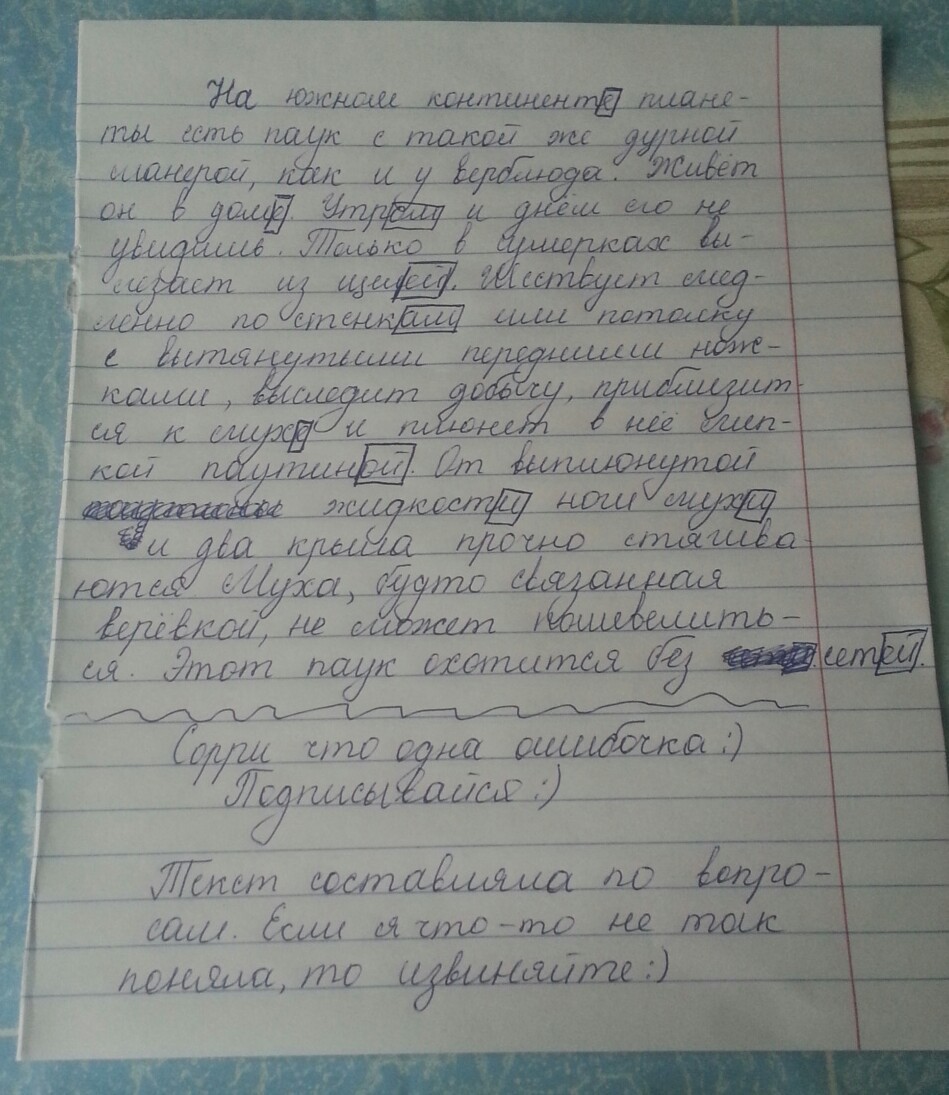 На южном континенте плане-
ты есть паук с такой же дурной
манерой, как и у верблюда. Живёт
он в доме. Утрам и днём его не
увидишь. Только в сумерках вы-
лезает из щелей. Шествует мед-
ленно по стенкам или потолку
с вытянутыми передними нож-
ками, выследит добычу, приблизит-
ся к мухе и плюнет в неё лип-
кой паутиной. От выплюнутой
жидкости ноги мухи
и два крыла прочно стягива-
ются Муха, будто связанная
верёвкой, не может пошевелить-
ся. Этот паук охотится без сетей.
Сорри что одна ошибочка :)
Подписывайся :)
Текст составляла по вопро-
сам. Если я что-то не так
поняла, то извиняйте :)